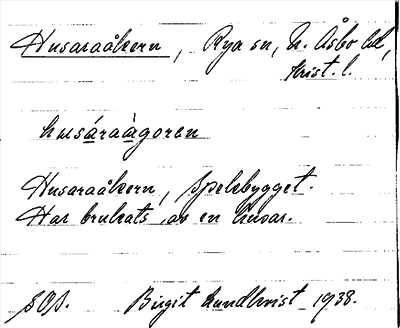 Husaraåkern, Rya sn, N. Åsbo hd,
Krist. l.
husáraàgoren
Husaraåkern, Spelebygget.
Har brukats av en husar.
Birgit Lundkvist 1938.